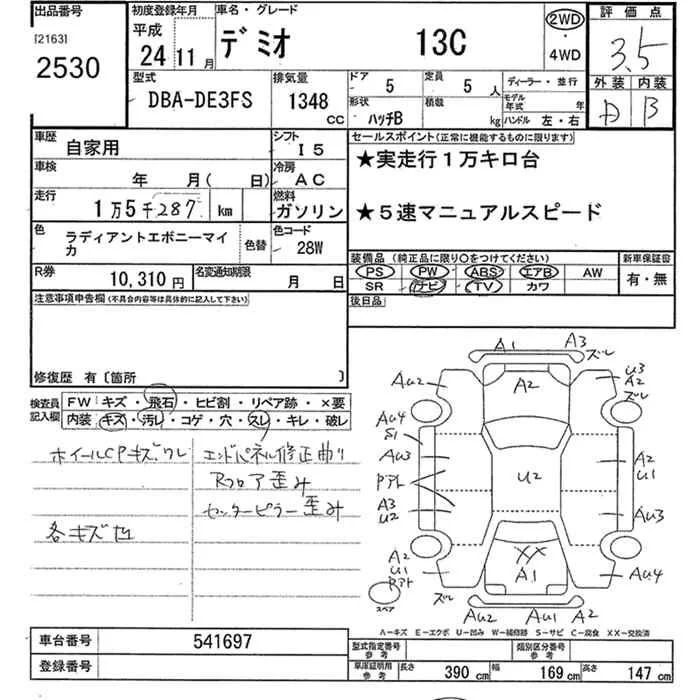 出品番号
[2163]
2530
初度登録年月
平成
24 11 月
車名・グレード
デミオ 13C
2WD
・
4WD
評価点
3.5
外装 内装
D B
型式
DBA-DE3FS
排気量
1348 CC
ドア 5
定員 5 人
ディーラー・並行
形状 ハッチB
積載 kg
モデル年式 年
ハンドル 左・右
車歴 自家用
シフト I5
車検 年 月( 日)
冷房 AC
走行 1万5千287 km
燃料 ガソリン
色 ラディアントエボニーマイカ
色替
色コード 28W
R券 10,310 円
名変通知期限 月 日
セールスポイント(正常に機能するものに限ります)
★実走行1万キロ台
★5速マニュアルスピード
装備品(純正品に限り○をつけてください)
新車保証書
PS PW ABS エアB AW
SR ナビ TV カワ
有・無
後日品
注意事項申告欄(不具合内容等は具体的に記入して下さい)
修復歴 有〔箇所 〕
検査員記入欄
FW キズ・飛石・ヒビ割・リペア跡・×要
内装 キズ・汚レ・コゲ・穴・スレ・キレ・破レ
ホイールCPキズワレ
各キズ凹
エンドパネル修正曲り
Rフロア歪み
センターピラー歪み
A1 A3 ズレ
AU2 A2 U3 A2 ズレ
AU4 S1
AU3 A2 U1
U2
A3 U2 AU3
A2 U1
XX
A1 AU4
ズレ
スペア
AU2 AU1 A2
A-キズ E-エクボ U-凹み W-補修跡 S-サビ C-腐食 XX-交換済
車台番号 541697
登録番号
型式指定番号 参考
類別区分番号 参考
車庫証明用 参考
長さ 390 cm 幅 169 cm 高さ 147 cm